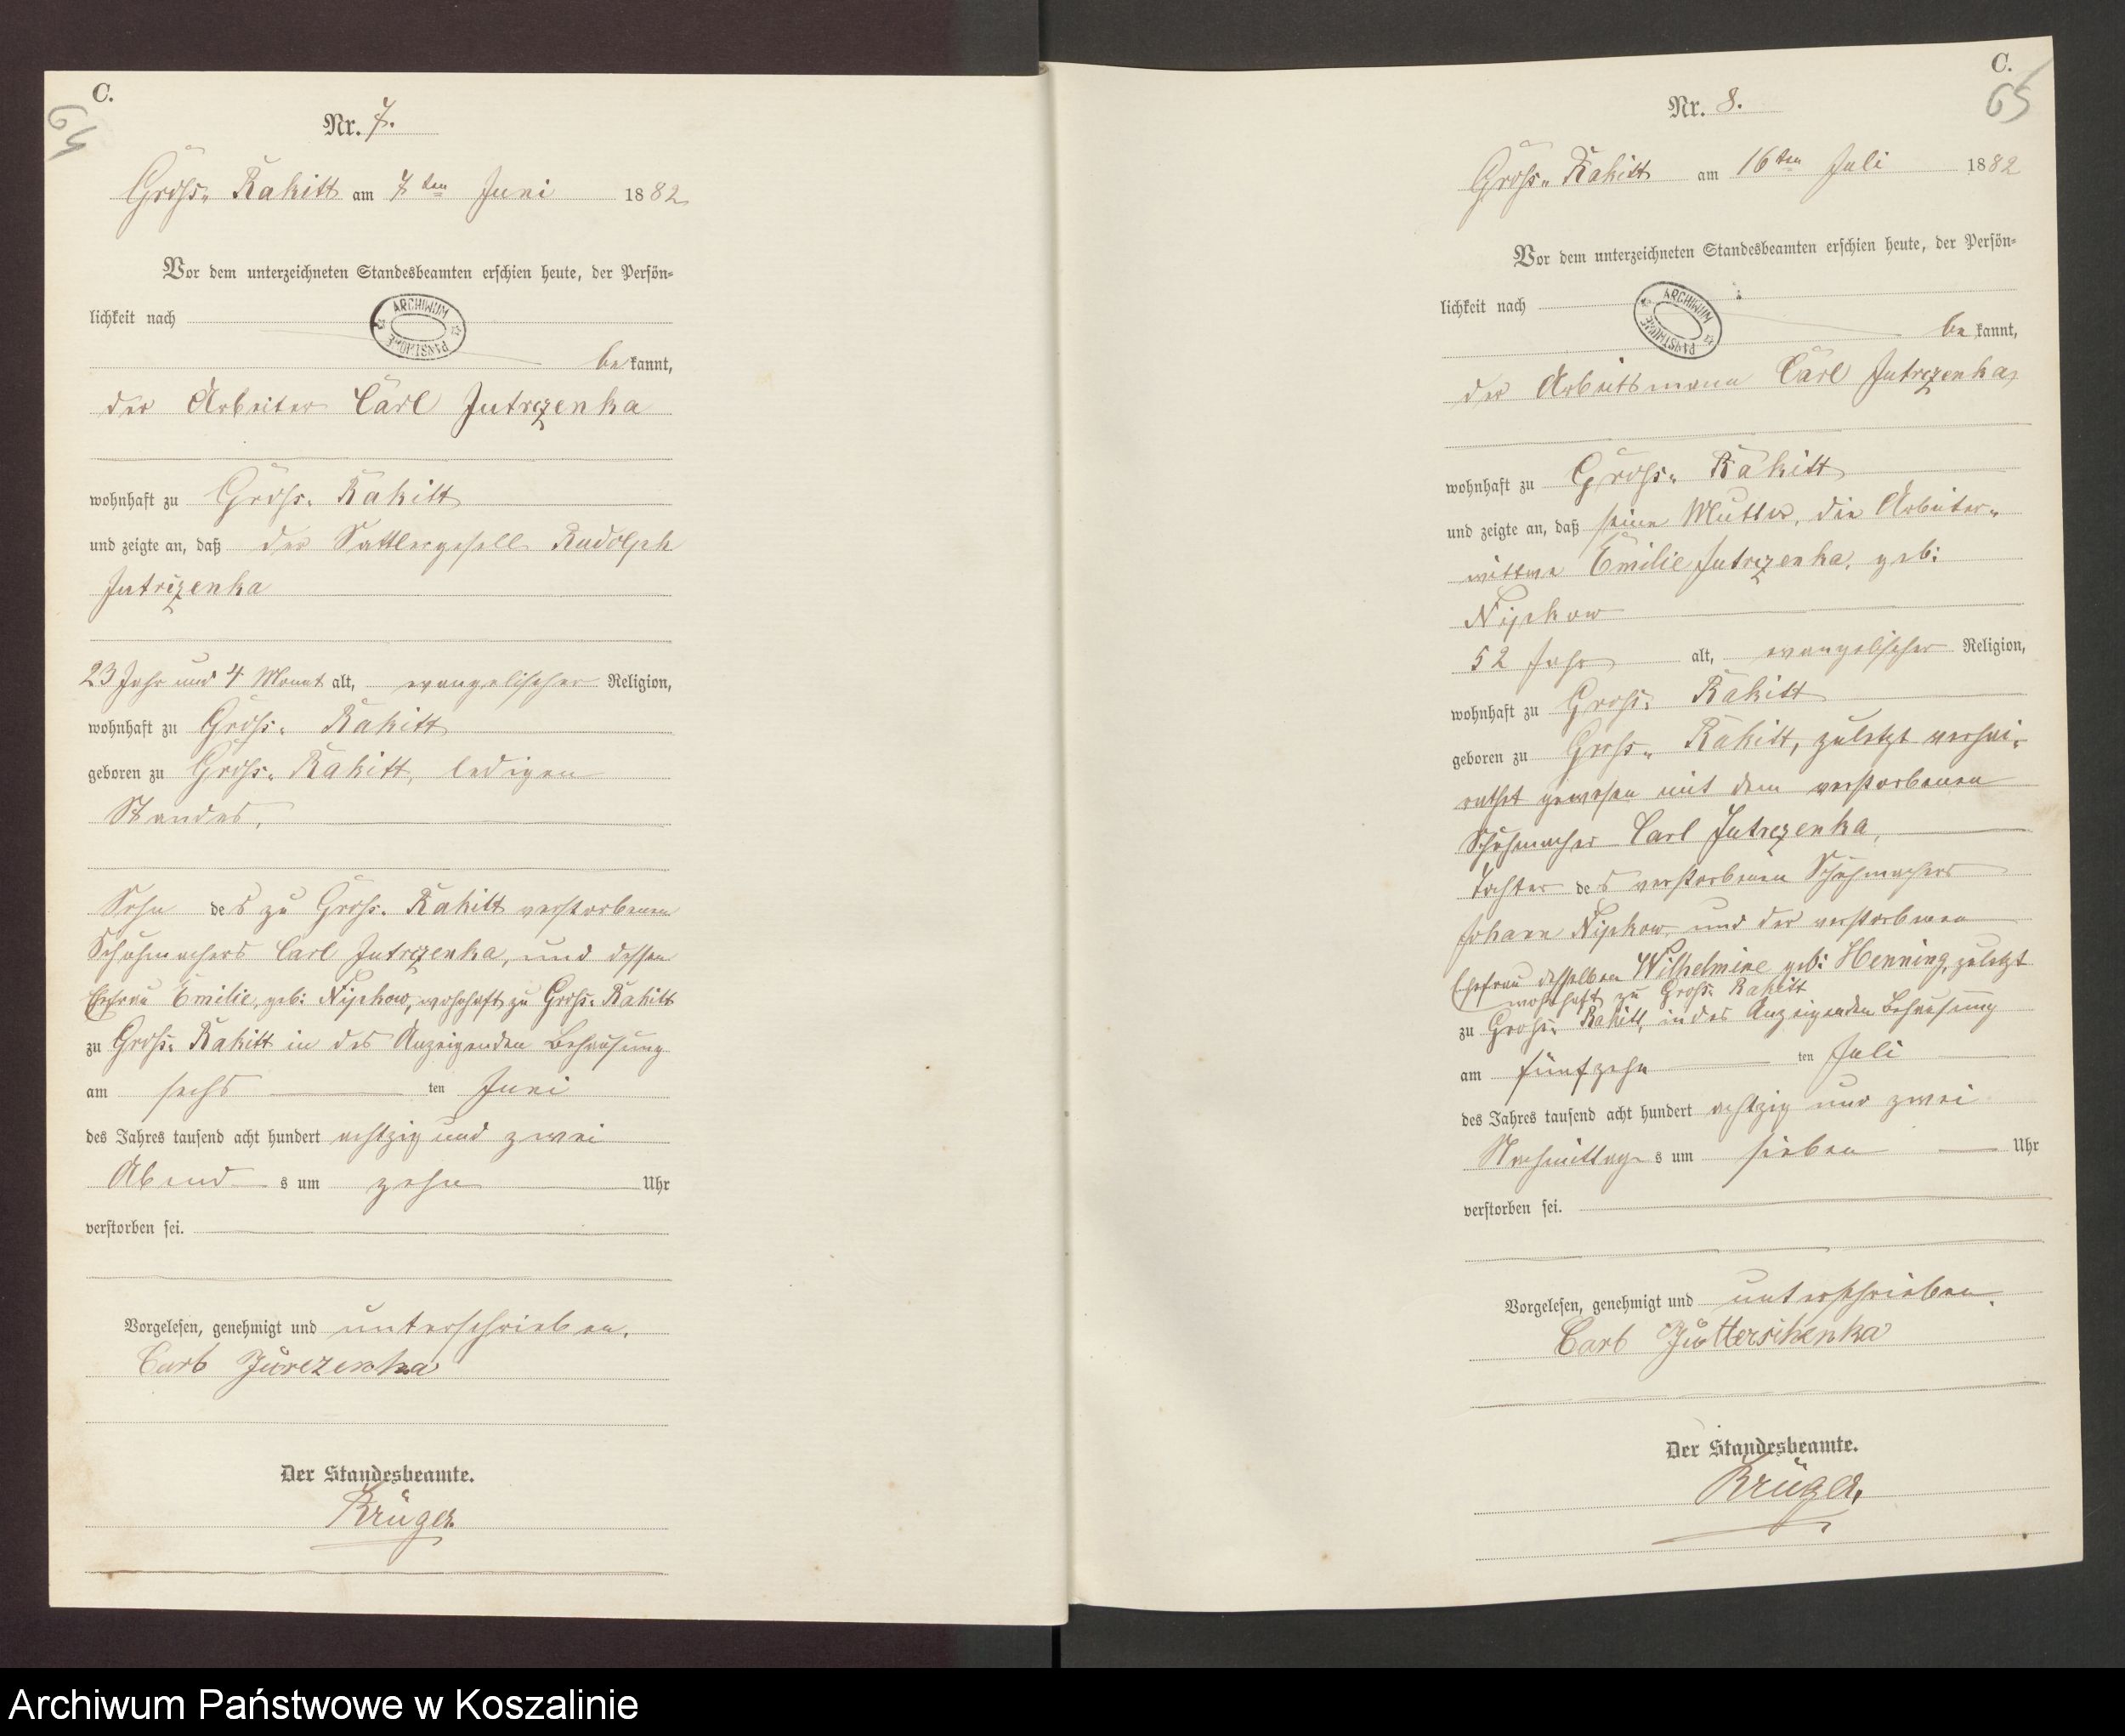 C.
64
Nr. 7.
Groß- Rakitt am 7ten Juni 1882
Vor dem unterzeichneten Standesbeamten erschien heute, der Persön=
lichkeit nach
ARCHIWUM PAŃSTWOWE
bekannt,
der Arbeiter Carl Jutrczenka
wohnhaft zu Groß- Rakitt
und zeigte an, daß der Sattlergesell Rudolph
Jutrczenka
23 Jahr und 4 Monat alt, evangelischer Religion,
wohnhaft zu Groß- Rakitt
geboren zu Groß- Rakitt, ledigen
Standes,
Sohn des zu Groß- Rakitt verstorbenen
Schuhmachers Carl Jutrczenka, und dessen
Ehefrau Emilie, geb: Nipkow, wohnhaft zu Groß- Rakitt
zu Groß- Rakitt in des Anzeigenden Behausung
am sechs ten Juni
des Jahres tausend acht hundert achtzig und zwei
Abends um zehn Uhr
verstorben sei.
Vorgelesen, genehmigt und unterschrieben.
Carl Jürezenka
Der Standesbeamte.
Krüger
C.
65
Nr. 8.
Groß- Rakitt am 16ten Juli 1882
Vor dem unterzeichneten Standesbeamten erschien heute, der Persön=
lichkeit nach
ARCHIWUM PAŃSTWOWE
bekannt,
der Arbeitsmann Carl Jutrczenka,
wohnhaft zu Groß- Rakitt
und zeigte an, daß seine Mutter, die Arbeiter-
wittwe Emilie Jutrczenka, geb:
Nipkow
52 Jahr alt, evangelischer Religion,
wohnhaft zu Groß- Rakitt
geboren zu Groß- Rakitt, zuletzt verhei-
rathet gewesen mit dem verstorbenen
Schuhmacher Carl Jutrczenka,
Tochter des verstorbenen Schuhmachers
Johann Nipkow und der verstorbenen
Ehefrau desselben Wilhelmine geb: Henning, zuletzt
wohnhaft zu Groß- Rakitt
zu Groß- Rakitt, in des Anzeigenden Behausung
am fünfzehn ten Juli
des Jahres tausend acht hundert achtzig und zwei
Nachmittags um sieben Uhr
verstorben sei.
Vorgelesen, genehmigt und unterschrieben.
Carl Jütterschenka
Der Standesbeamte.
Krüger
Archiwum Państwowe w Koszalinie